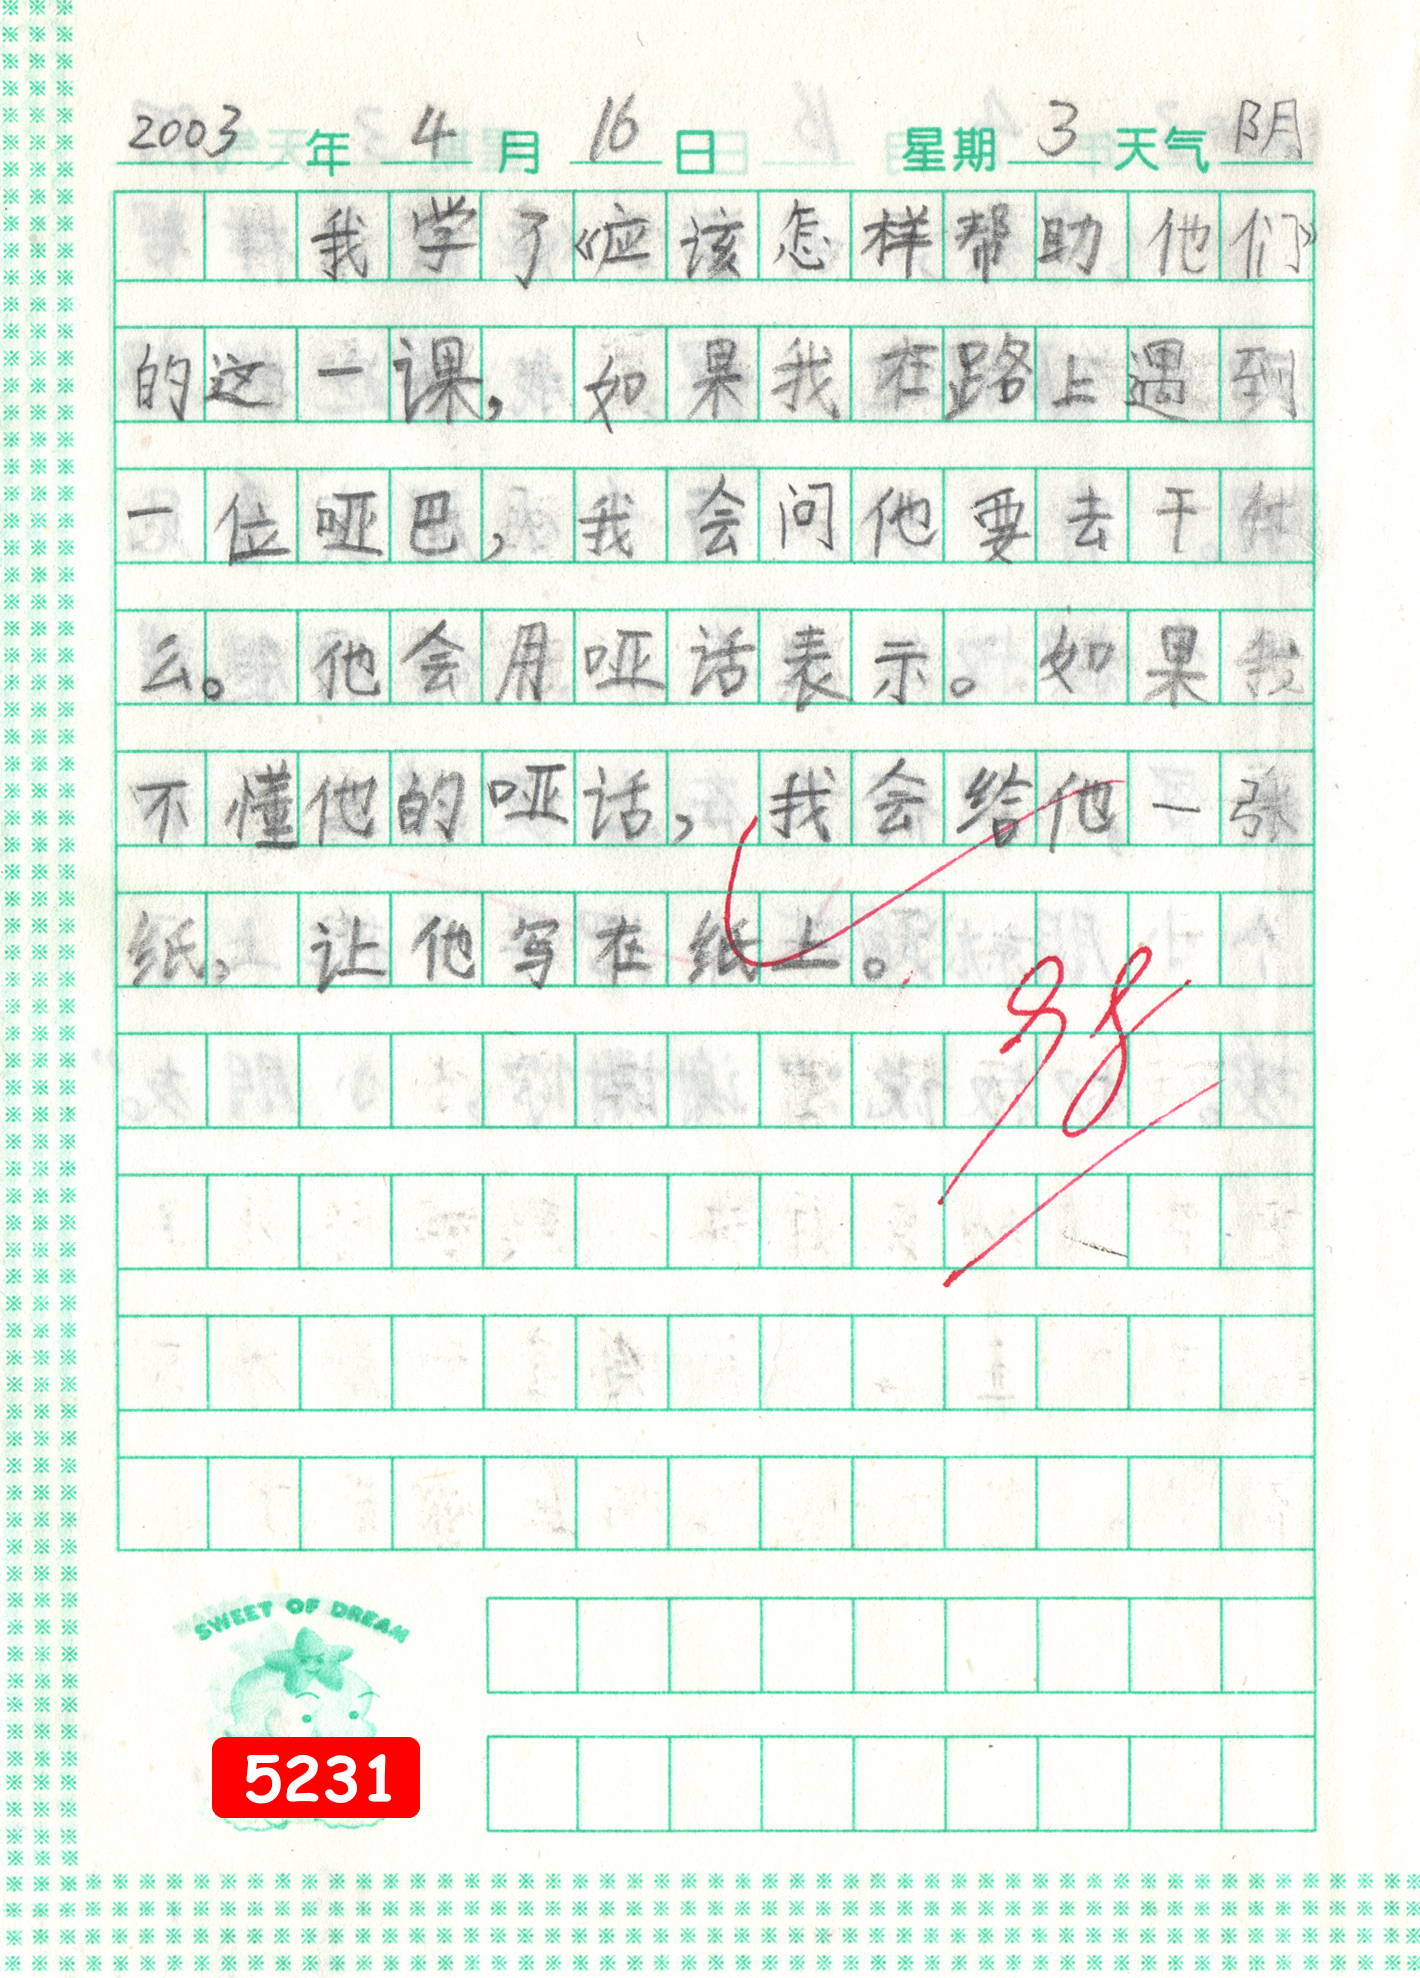 2003年 4月 16日 星期3 天气阴
我学了《应该怎样帮助他们》
的这一课，如果我在路上遇到
一位哑巴，我会问他要去干什
么。他会用哑话表示。如果我
不懂他的哑话，我会给他一张
纸，让他写在纸上。
SWEET OF DREAM
5231